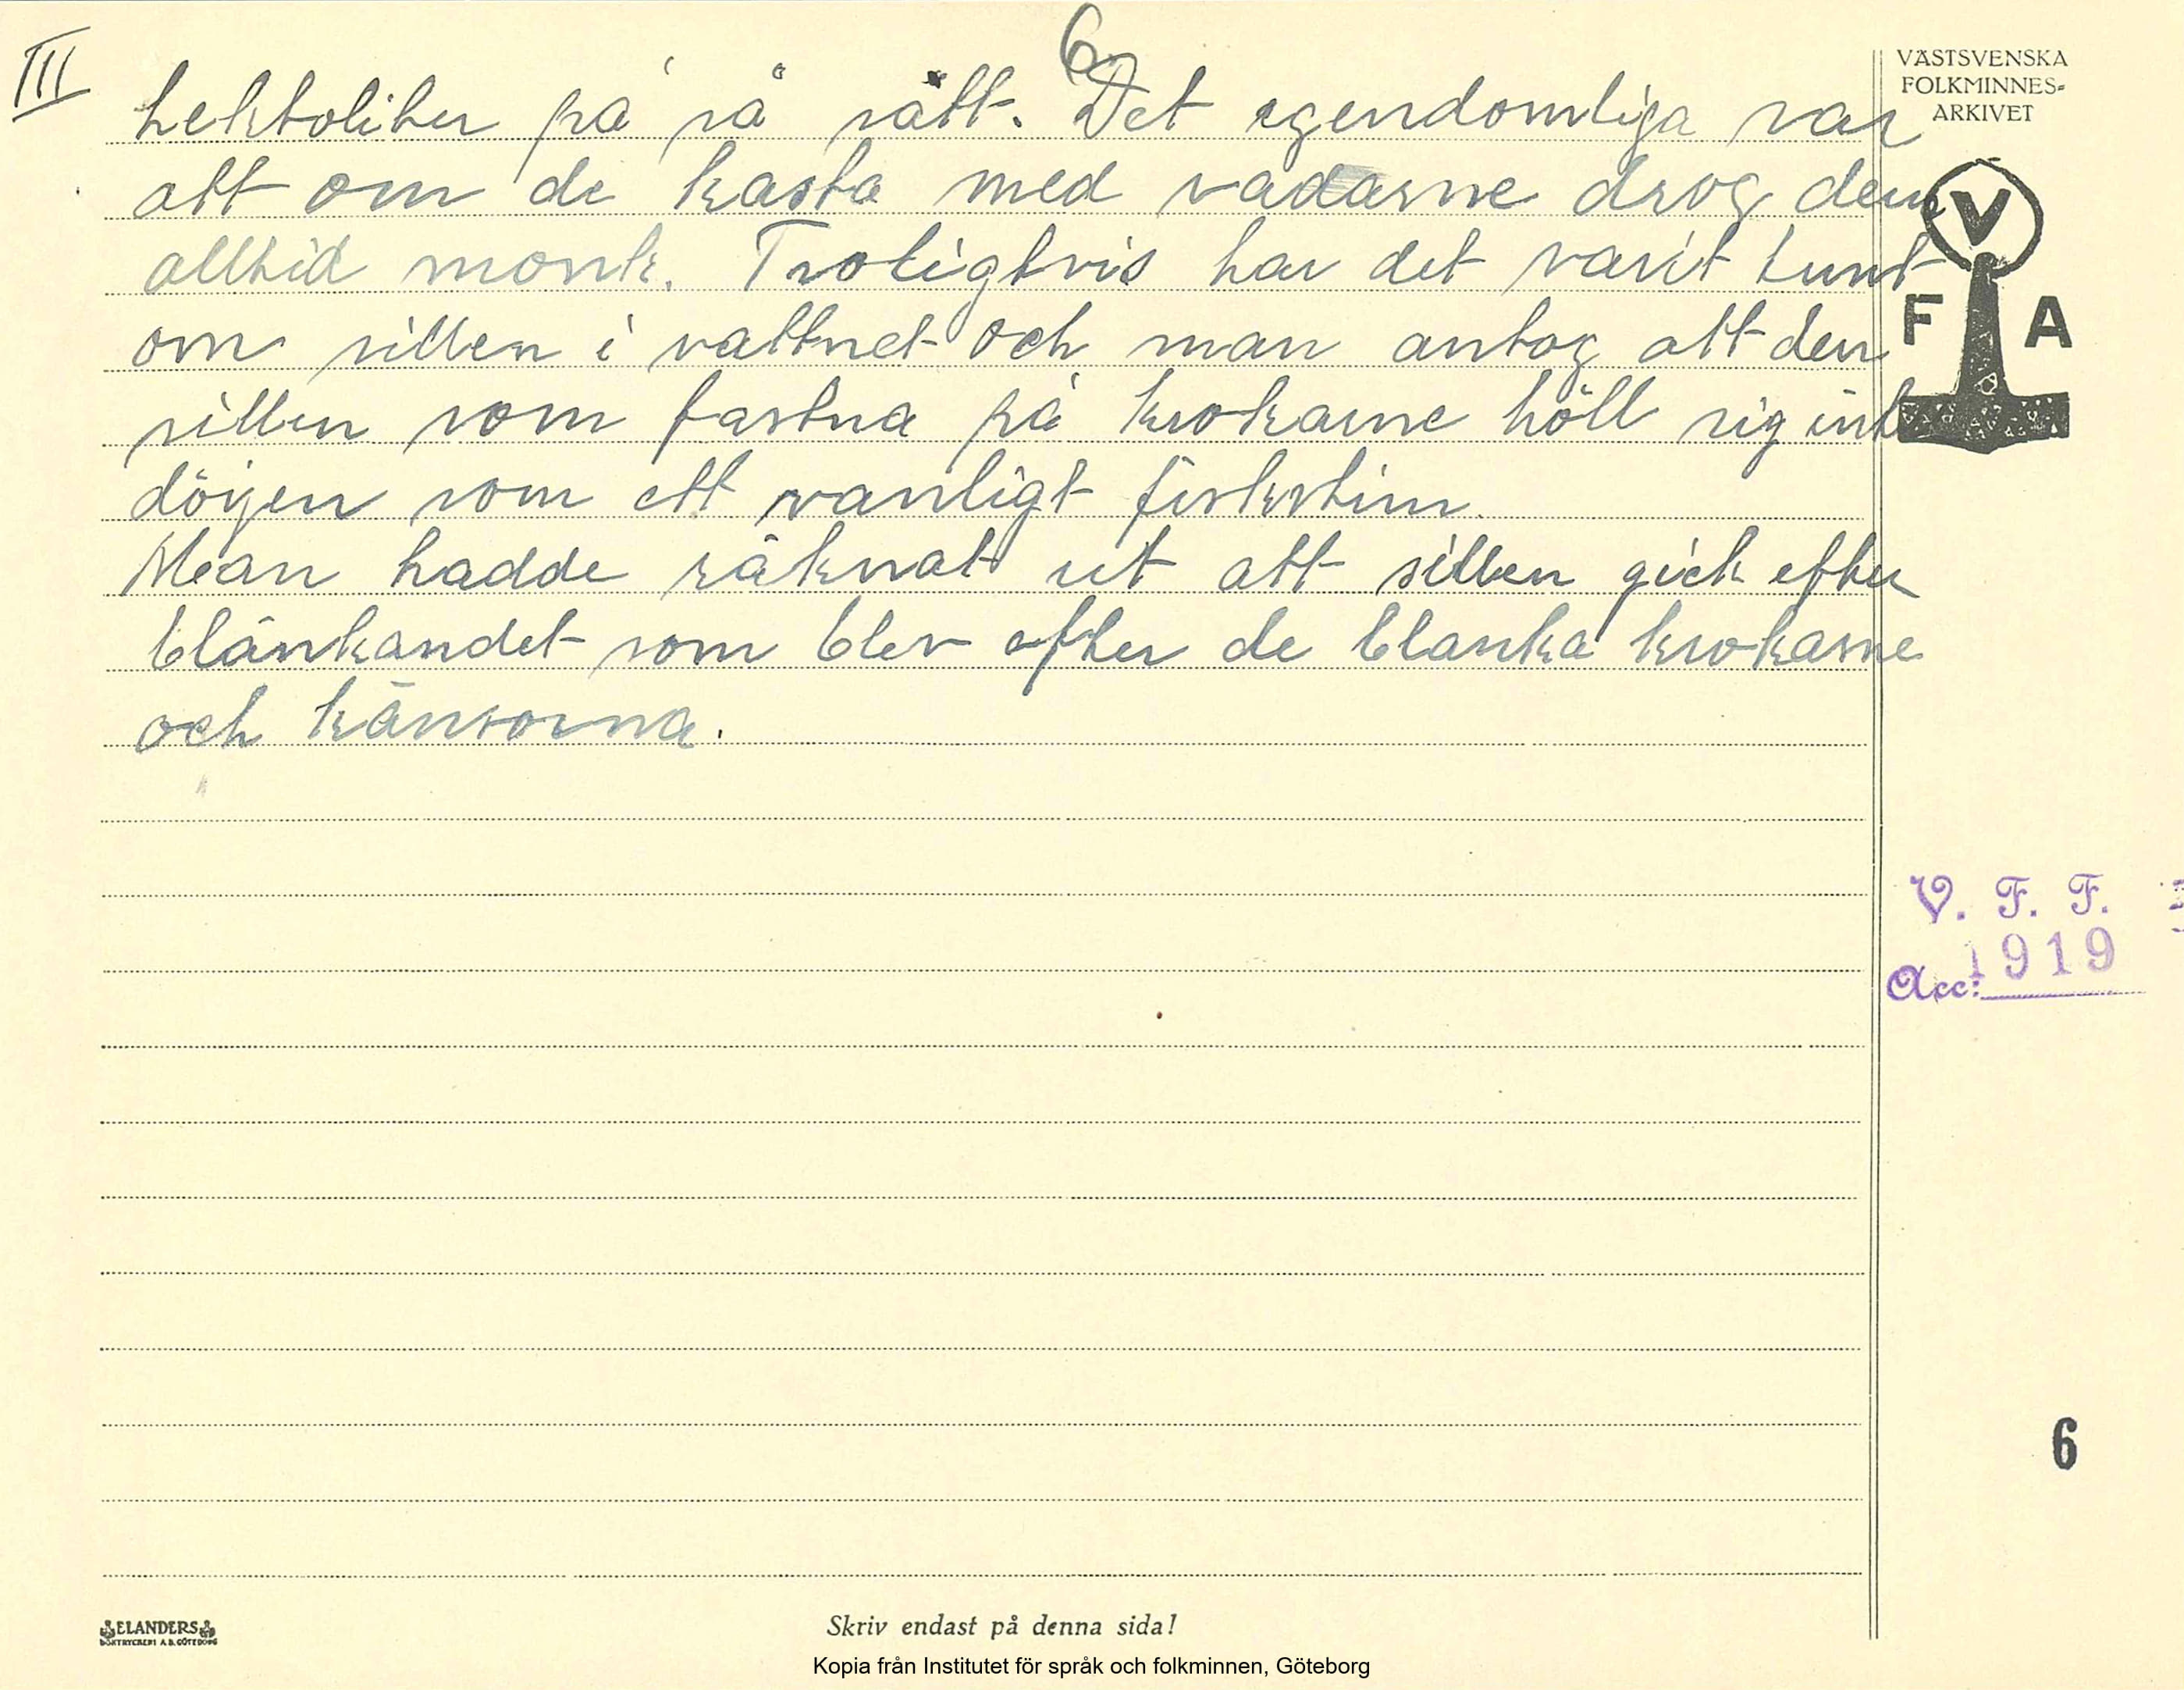 III
6
hektoliter på så sätt. Det egendomliga var
att om de kasta med vadarne drog dem
alltid monk. Troligtvis har det varit tunt
om sillen i vattnet och man antog att den
sillen som fastna på krokarne höll sig int
döijen som ett vanligt fiskstim.
Mean hadde räknat ut att sillen gick efter
blänkandet som blev efter de blanka krokarne
och känsorna.
VÄSTSVENSKA
FOLKMINNES-
ARKIVET
V
F A
V. F. F.
Acc: 1919
6
ELANDERS
BOKTRYCKERI A.B. GÖTEBORG
Skriv endast på denna sida!
Kopia från Institutet för språk och folkminnen, Göteborg